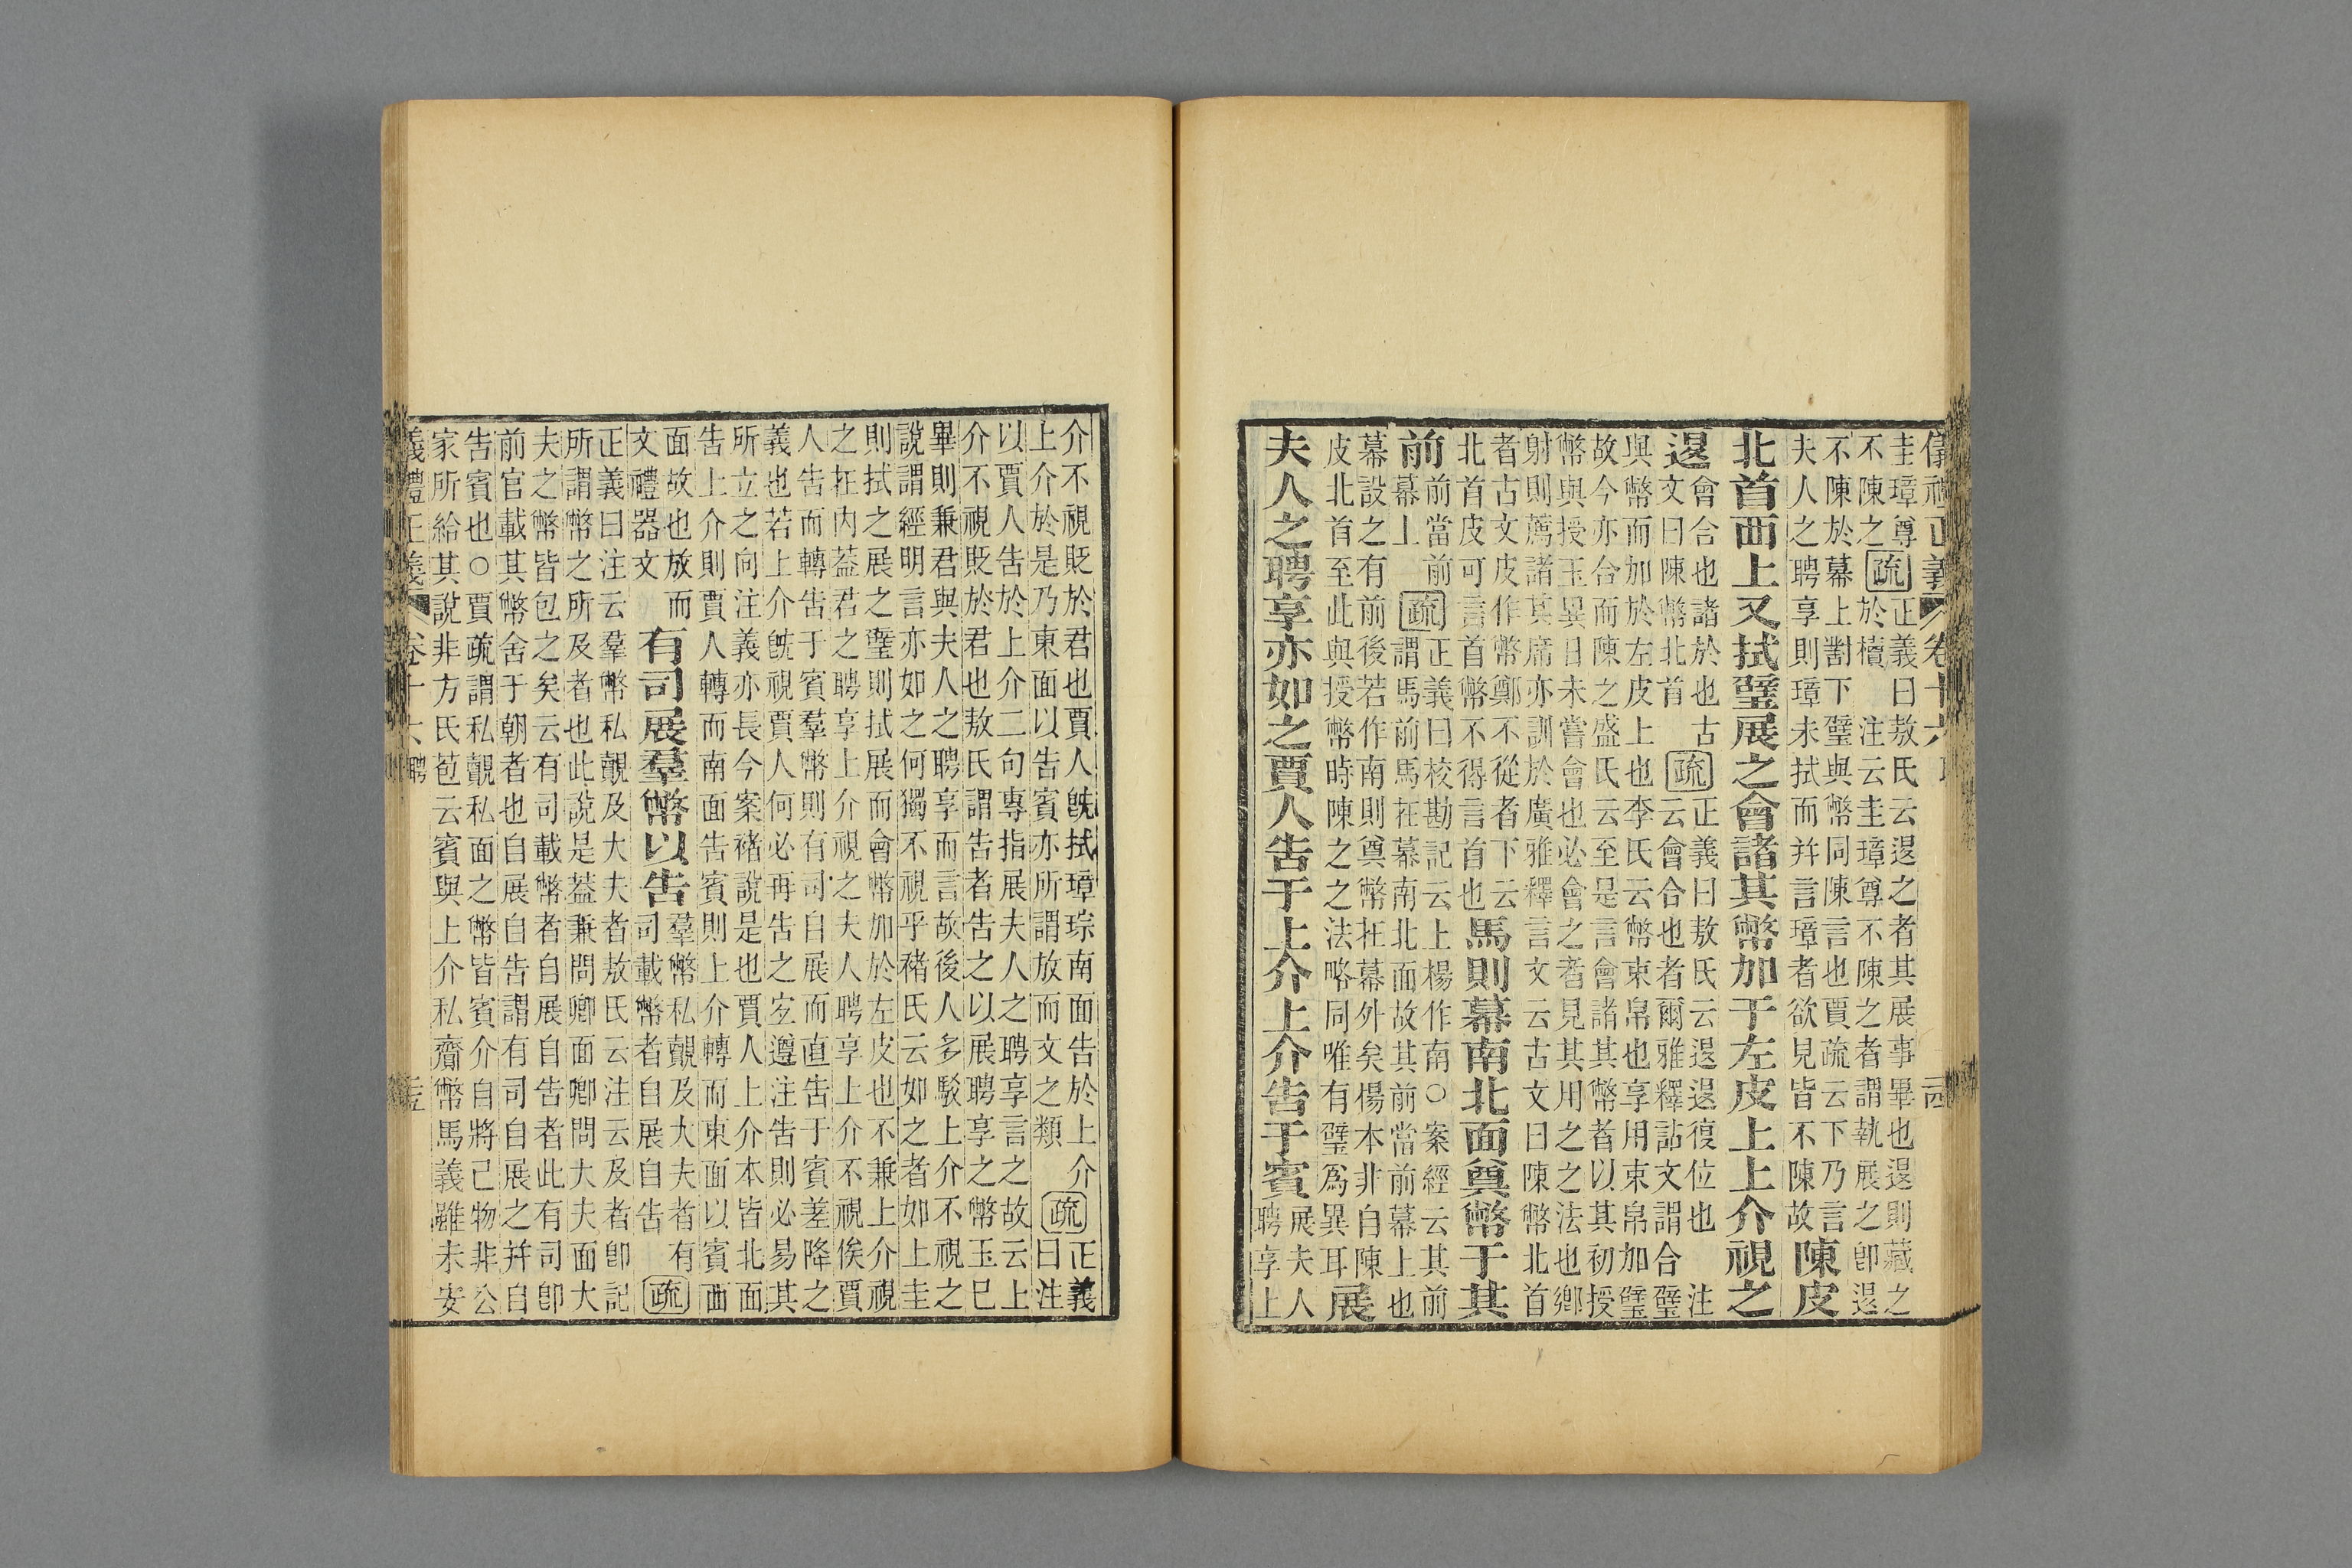 儀禮正義 卷十六 聘
圭璋尊正義曰敖氏云退之者其展事畢也退則藏之
不陳之疏於櫝 注云圭璋尊不陳之者謂執展之卽退
不陳於幕上劄下璧與幣同陳言也賈疏云下乃言
夫人之聘享則璋未拭而并言璋者欲見皆不陳故陳皮
北首西上又拭璧展之會諸其幣加于左皮上上介視之
退會合也諸於也古疏正義曰敖氏云退退復位也 注
文曰陳幣北首 云會合也者爾雅釋詁文謂合璧
與幣而加於左皮上也李氏云幣束帛也享用束帛加璧
故今亦合而陳之盛氏云至是言會諸其幣者以其初授
幣與授玉異日未嘗會也必會之者見其用之之法也鄉
射則薦諸其席亦訓於廣雅釋言文云古文曰陳幣北首
者古文皮作幣鄭不從者下云
北首皮可言首幣不得言首也馬則幕南北面奠幣于其
前前當前疏正義曰校勘記云上楊作南○案經云其前
幕上 謂馬前馬在幕南北面故其前當前幕上也
幕設之有前後若作南則奠幣在幕外矣楊本非自陳
皮北首至此與授幣時陳之之法略同唯有璧爲異耳展
夫人之聘享亦如之賈人告于上介上介告于賓展夫人聘享上
介不視貶於君也賈人旣拭璋琮南面告於上介疏正義
上介於是乃東面以告賓亦所謂放而文之類曰注
以賈人告於上介二句專指展夫人之聘享言之故云上
介不視貶於君也敖氏謂告者告之以展聘享之幣玉已
畢則兼君與夫人之聘享而言故後人多駁上介不視之
說謂經明言亦如之何獨不視乎褚氏云如之者如上圭
則拭之展之璧則拭展而會幣加於左皮也不兼上介視
之在內葢君之聘享上介視之夫人聘享上介不視俟賈
人告而轉告于賓羣幣則有司自展而直告于賓差降之
義也若上介旣視賈人何必再告之㝎遵注告則必易其
所立之向注義亦長今案褚說是也賈人上介本皆北面
告上介則賈人轉而南面告賓則上介轉而東面以賓西
面故也放而
文禮器文 有司展羣幣以告羣幣私覿及大夫者有疏
司載幣者自展自告
正義曰注云羣幣私覿及大夫者敖氏云注云及者卽記
所謂幣之所及者也此說是葢兼問卿面卿問大夫面大
夫之幣皆包之矣云有司載幣者自展自告者此有司卽
前官載其幣舍于朝者也自展自告謂有司自展之并自
告賓也○賈疏謂私覿私面之幣皆賓介自將己物非公
家所給其說非方氏苞云賓與上介私齎幣馬義雖未安
義禮正義 卷十六聘